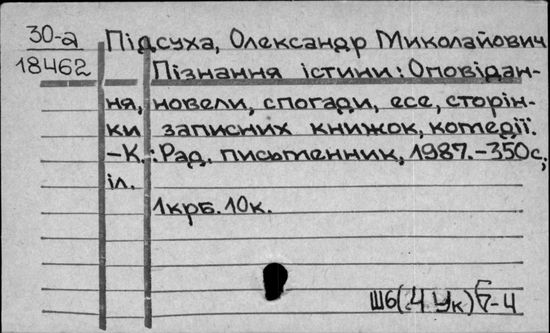 30-а
18462
Підсуха, Олександр Миколайович
Пізнання істини: Оповідан-
ня, новели, спогади, есе, сторін-
ки записних книжок, комедії.
-К.: Рад. письменник, 1987.-350с,
іл.
1крб. 10к.
Ш6(4Ук)